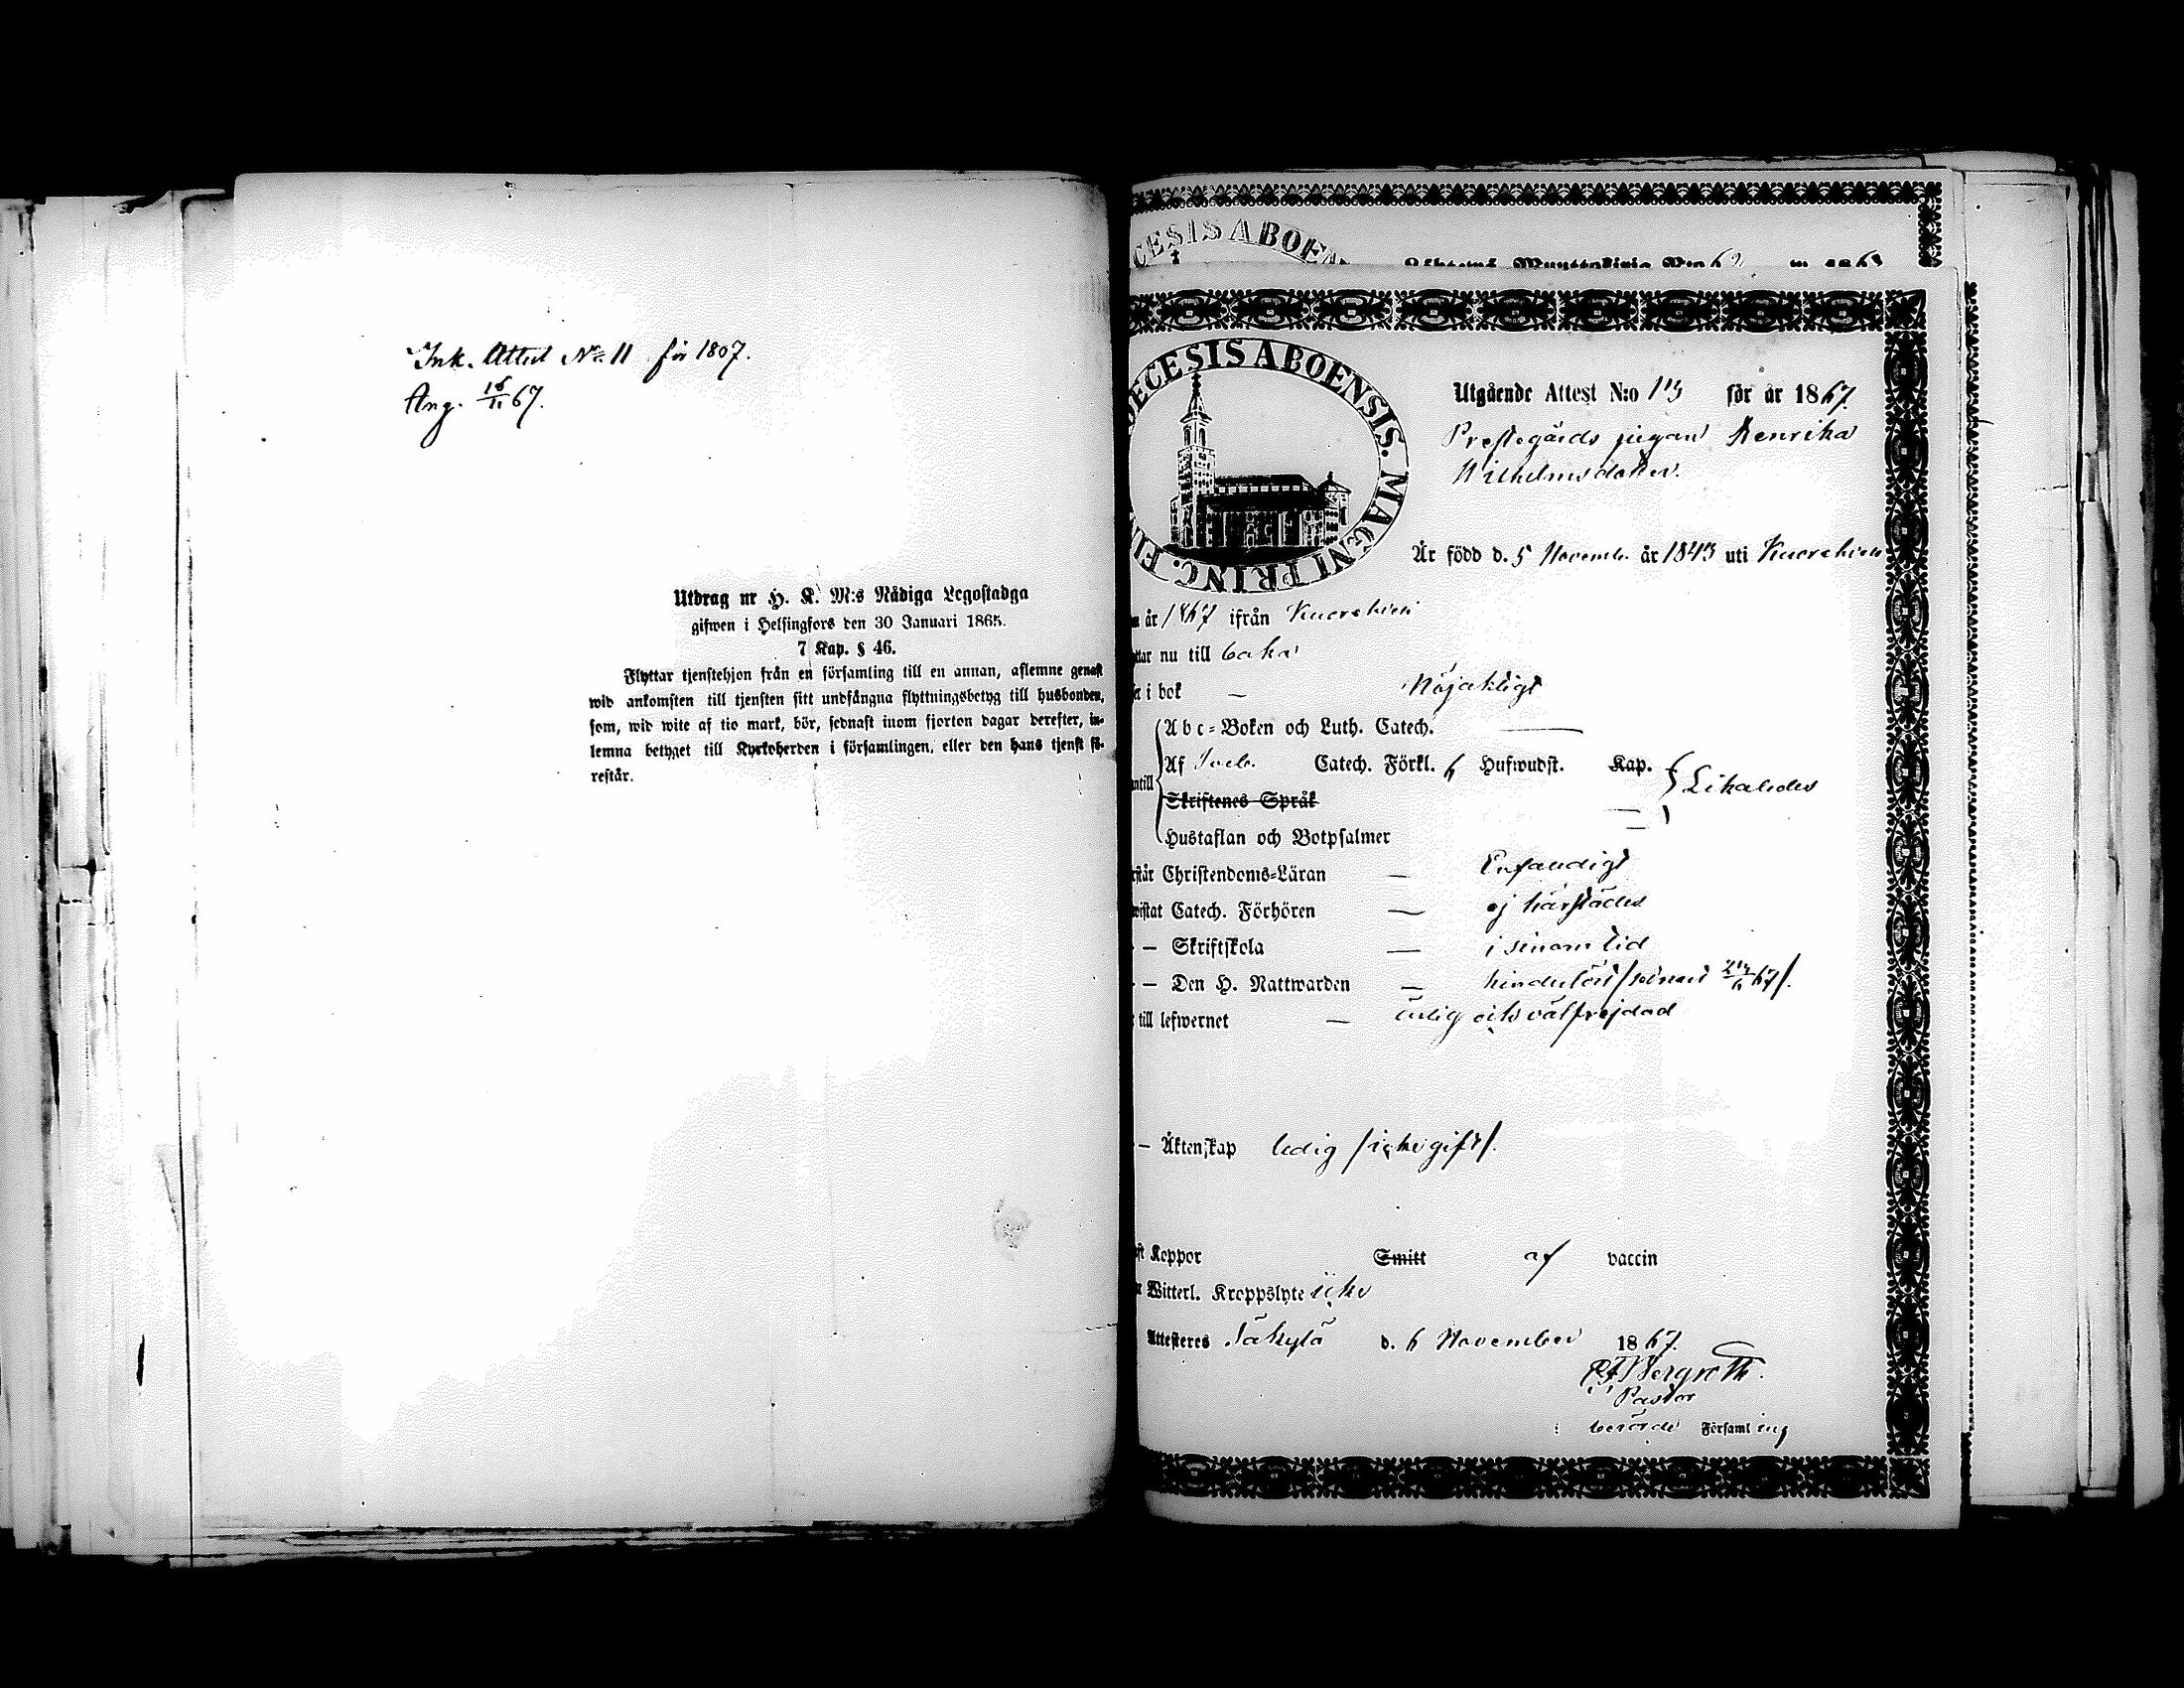 Ink. Attest No 11 för 1867.
Ang. 16/11 67.
Utdrag ur H. K. M:s Nådiga Legostadga
gifwen i Helsingfors den 30 Januari 1865.
7 Kap. § 46.
Flyttar tjenstehjon från en församling till en annan, aflemne genast
wid ankomsten till tjensten sitt undfångna flyttningsbetyg till husbonden,
som, wid wite af tio mark, bör, sednast inom fjorton dagar derefter, in-
lemna betyget till Kyrkoherden i församlingen, eller den hans tjenst fö-
restår.
CESIS ABOEN
DECESIS ABOENSIS. MAGNI PRINC. FIN
Utgående Attest N:o 113 för år 1867.
Prestegårds pigan Henrika
Wilhelmsdotter.
Är född d. 5 Novemb. år 1843 uti
år 1867 ifrån
nu till
i bok — Nöjaktigt
Abc-Boken och Luth. Catech. —
Af Catech. Förkl. 6 Hufwudst. Kap.
Likaledes
Skriftenes Språk —
Hustaflan och Botpsalmer —
Christendoms-Läran — Enfaldigt
Catech. Förhören — ej härstädes
— Skriftskola — i sinom tid
— Den H. Nattwarden — hinderlöst
till lefwernet — ärlig och välfrejdad
— Äktenskap ledig /icke gift/.
Koppor Smitt af vaccin
Witterl. Kroppslyte icke
Attesteres Säkylä d. 6 November 1867.
Bergroth.
Pastor
berörde Församling